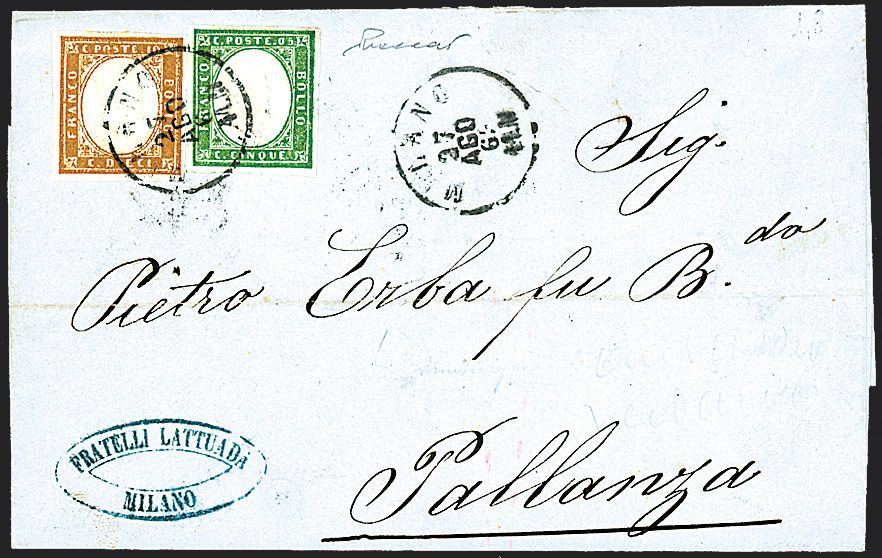 C. POSTE. 10
FRANCO
BOLLO
C. DIECI.
C. POSTE. 05
FRANCO
BOLLO
C. CINQUE
MILANO
AGO
MILANO
AGO
Sig.
Pietro Erba fu B.do
Pallanza
FRATELLI LATTUADA
MILANO